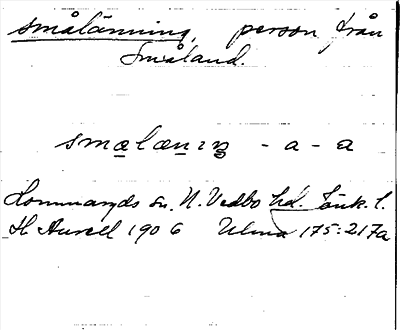 smålänning, person från
Småland.
smalænıŋ - a - a
Lommaryds sn. N. Vedbo hd. Jönk. l.
H Aurell 1906 Ulma 175:217a